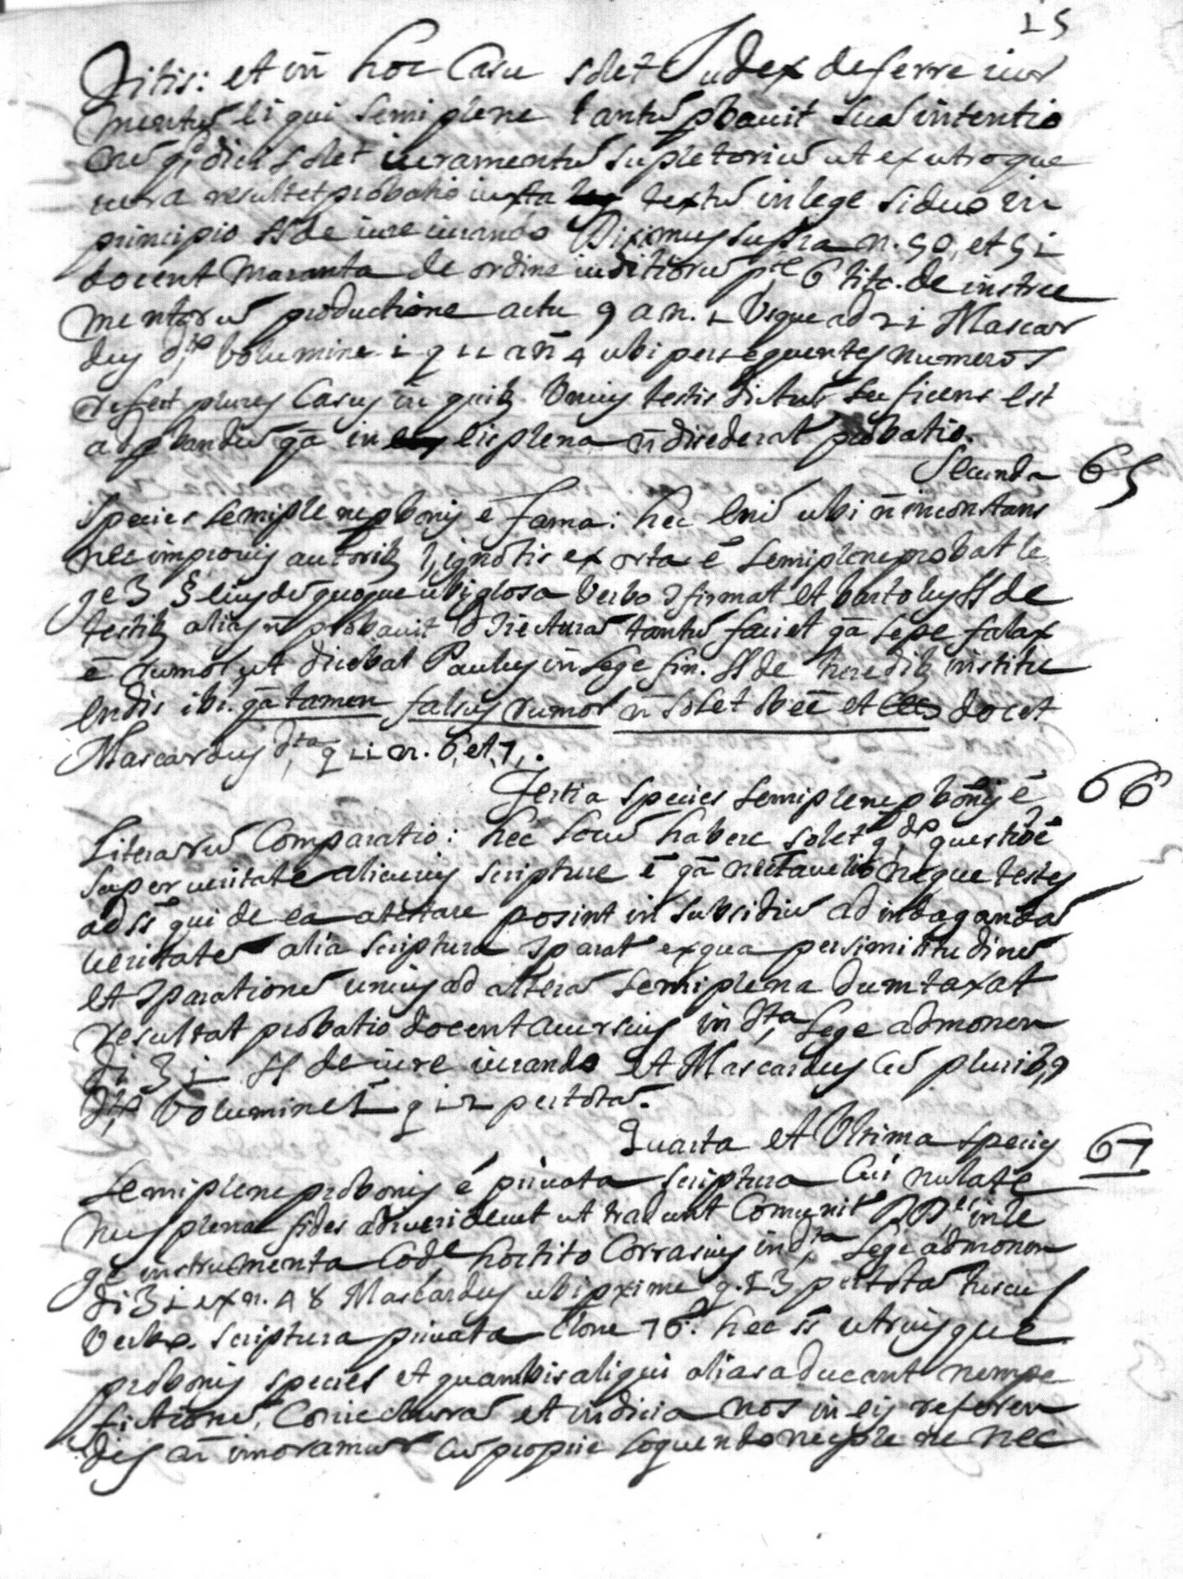 25
Titis: et in hoc Casu solet Judex deferre iur
mentũ ei qui semiplene tantũ pbauit suã intentio
nẽ qd dici solet iuramentũ supletoriũ ut ex utroque
iura resultet probatio iuxta textũ in lege si duo in
principio ff de iure iurando Diximus supra n. 50, et 51
docent Maranta de ordine iuditiorũ p.te 6 tit. de instru
mentorũ productione actu 9 a n. 1 Usque ad 21 Mascar
dus d.º Volumine 1 q 11 a n 4 ubi per sequentes numeros
refert plures Casus in quib Unius testis dictum suficiens est
ad pbandũ qã in eis plena ñ desiderat probatio.
Secunda 65
species semiplene pbonis ẽ fama: hec enĩ ubi ñ inconstans
nec improuis autorib, ignotis exorta ẽ semiplene probat le
ge 3 § eiusdẽ quoque ubi glosa Verbo confirmat et bartolus ff de
testib alias ñ probauit coniecturã tantũ faciet qã sepe falax
ẽ rumor ut dicebat Paulus in lege fin. ff de heredib institu
endis ibi. qã tamen falsus rumor ñ solet obeẽ et docet
Mascardus d.ta q 11 n. 6, et 7,.
Tertia species semiplene pbonis ẽ 66
Literarũ Comparatio: hec locũ habere solet q.do questio ẽ
super ueritate alicuius scripture ẽ qã neque testes
adsṽ qui de ea atestare posint in subsidiũ ad indagandã
ueritatẽ alia scriptura cparat ex qua per similitudinẽ
et cparationẽ unius ad alterã semiplena dumtaxat
resultat probatio docent Acursius in d.ta lege admonen
di 31 ff de iure iurando et Mascardus cũ plurib9
d.to Volumine 1 q 12 per totã.
Quarta et Ultima species 67
semiplene probonis ẽ priuata scriptura Cui nulate
nus plena fides adiuueri debet ut tradunt Comunit DD.es in le
ge instrumenta Cod.e hoc tito Corrasius in d.ta lege admonen
di 31 ex n. 48 Mascardus ubi pxime q. 13 per totã Tuscus
Verbo. scriptura priuata Clone 76. hec sṽ utriusque
probonis species et quambis aliqui alias aducant nempe
fictionẽ, Coniecturã et indicia nos in eis referen
dis ñ imoramur cũ proprie loquendo neque plene nec